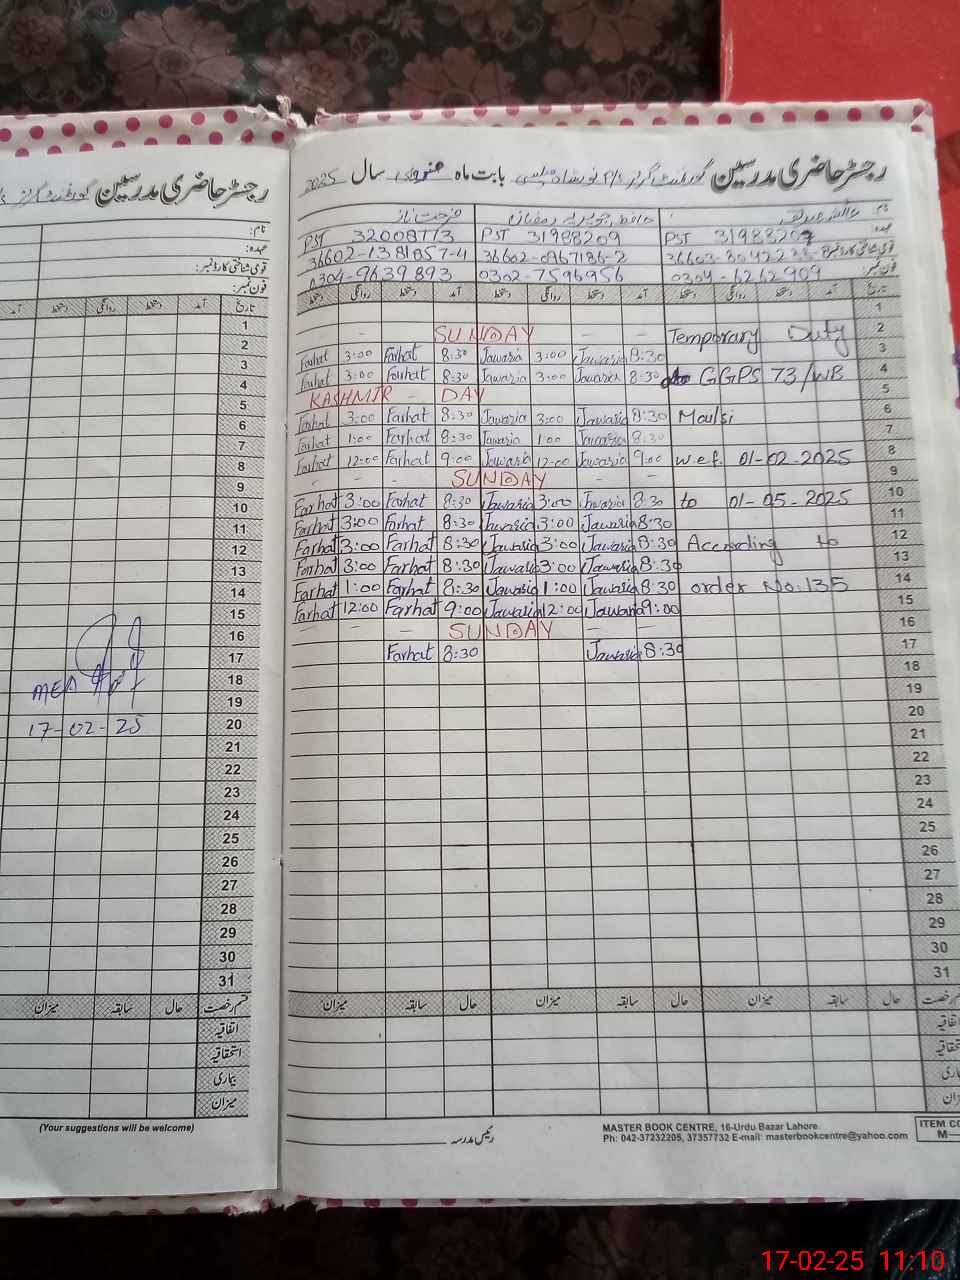 رجسٹر حاضری مدرسین
نام:
عہدہ:
قومی شناختی کارڈ نمبر:
فون نمبر:
تاریخ آمد دستخط روانگی دستخط آمد
1
2
3
4
5
6
7
8
9
10
11
12
13
14
15
16
17
18
MEA
19
20
17-02-25
21
22
23
24
25
26
27
28
29
30
31
قسم رخصت حال سابقہ میزان
اتفاقیہ
استحقاقیہ
بیماری
میزان
(Your suggestions will be welcome)
رجسٹر حاضری مدرسین گورنمنٹ گرلز بابت ماہ سال 2025
نام: حافظہ جویریہ رمضان فرحت ناز
عہدہ: PST 31988209 PST 31988209 PST 32008773
قومی شناختی کارڈ نمبر: 36602-0967186-2 36602-1381857-4
فون نمبر: 0304-6262909 0302-7596956 0304-9639893
تاریخ آمد دستخط روانگی دستخط آمد دستخط روانگی دستخط آمد دستخط روانگی دستخط
1
- SUNDAY - - Temporary Duty 2
Farhat 3:00 Farhat 8:30 Jawaria 3:00 Jawaria 8:30 3
Farhat 3:00 Farhat 8:30 Jawaria 3:00 Jawaria 8:30 GGPS 73/WB 4
KASHMIR - DAY 5
Farhat 3:00 Farhat 8:30 Jawaria 3:00 Jawaria 8:30 Moulsi 6
Farhat 1:00 Farhat 8:30 Jawaria 1:00 Jawaria 8:30 7
Farhat 12:00 Farhat 9:00 Jawaria 12:00 Jawaria 9:00 w.e.f. 01-02-2025 8
- - - SUNDAY - - 9
Farhat 3:00 Farhat 8:30 Jawaria 3:00 Jawaria 8:30 to 01-05-2025 10
Farhat 3:00 Farhat 8:30 Jawaria 3:00 Jawaria 8:30 11
Farhat 3:00 Farhat 8:30 Jawaria 3:00 Jawaria 8:30 According to 12
Farhat 3:00 Farhat 8:30 Jawaria 3:00 Jawaria 8:30 13
Farhat 1:00 Farhat 8:30 Jawaria 1:00 Jawaria 8:30 order No. 135 14
Farhat 12:00 Farhat 9:00 Jawaria 12:00 Jawaria 9:00 15
- - - SUNDAY - - 16
Farhat 8:30 Jawaria 8:30 17
18
19
20
21
22
23
24
25
26
27
28
29
30
31
رخصت حال سابقہ میزان حال سابقہ میزان حال سابقہ میزان
رئیس مدرسہ
MASTER BOOK CENTRE, 16-Urdu Bazar Lahore.
Ph: 042-37232205, 37357732 E-mail: masterbookcentre@yahoo.com
ITEM CO
M—
17-02-25 11:10